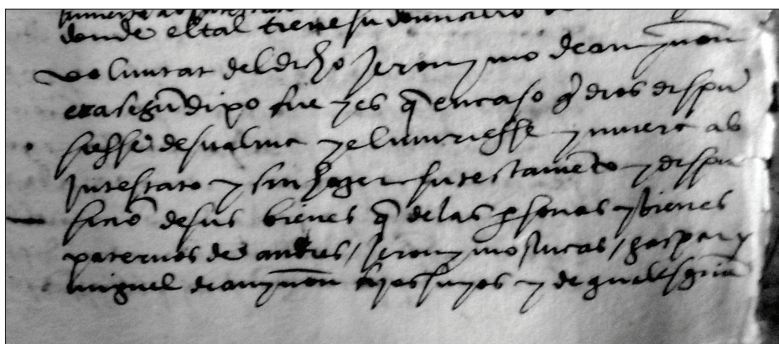 donde el tal tiene su domicilio
voluntat del dicho Jeronymo de aynçon
era segun dixo fue y es q̄ en caso q̄ dios dispu
siesse de su alma y el muriesse y muera ab
Intestato y sin hazer su testamēto y dispu
sicio de sus bienes q̄ de las psonas y bienes
paternos de andres / Jeronymo lucas / gaspar y
miguel de aynçon hijos suyos y de